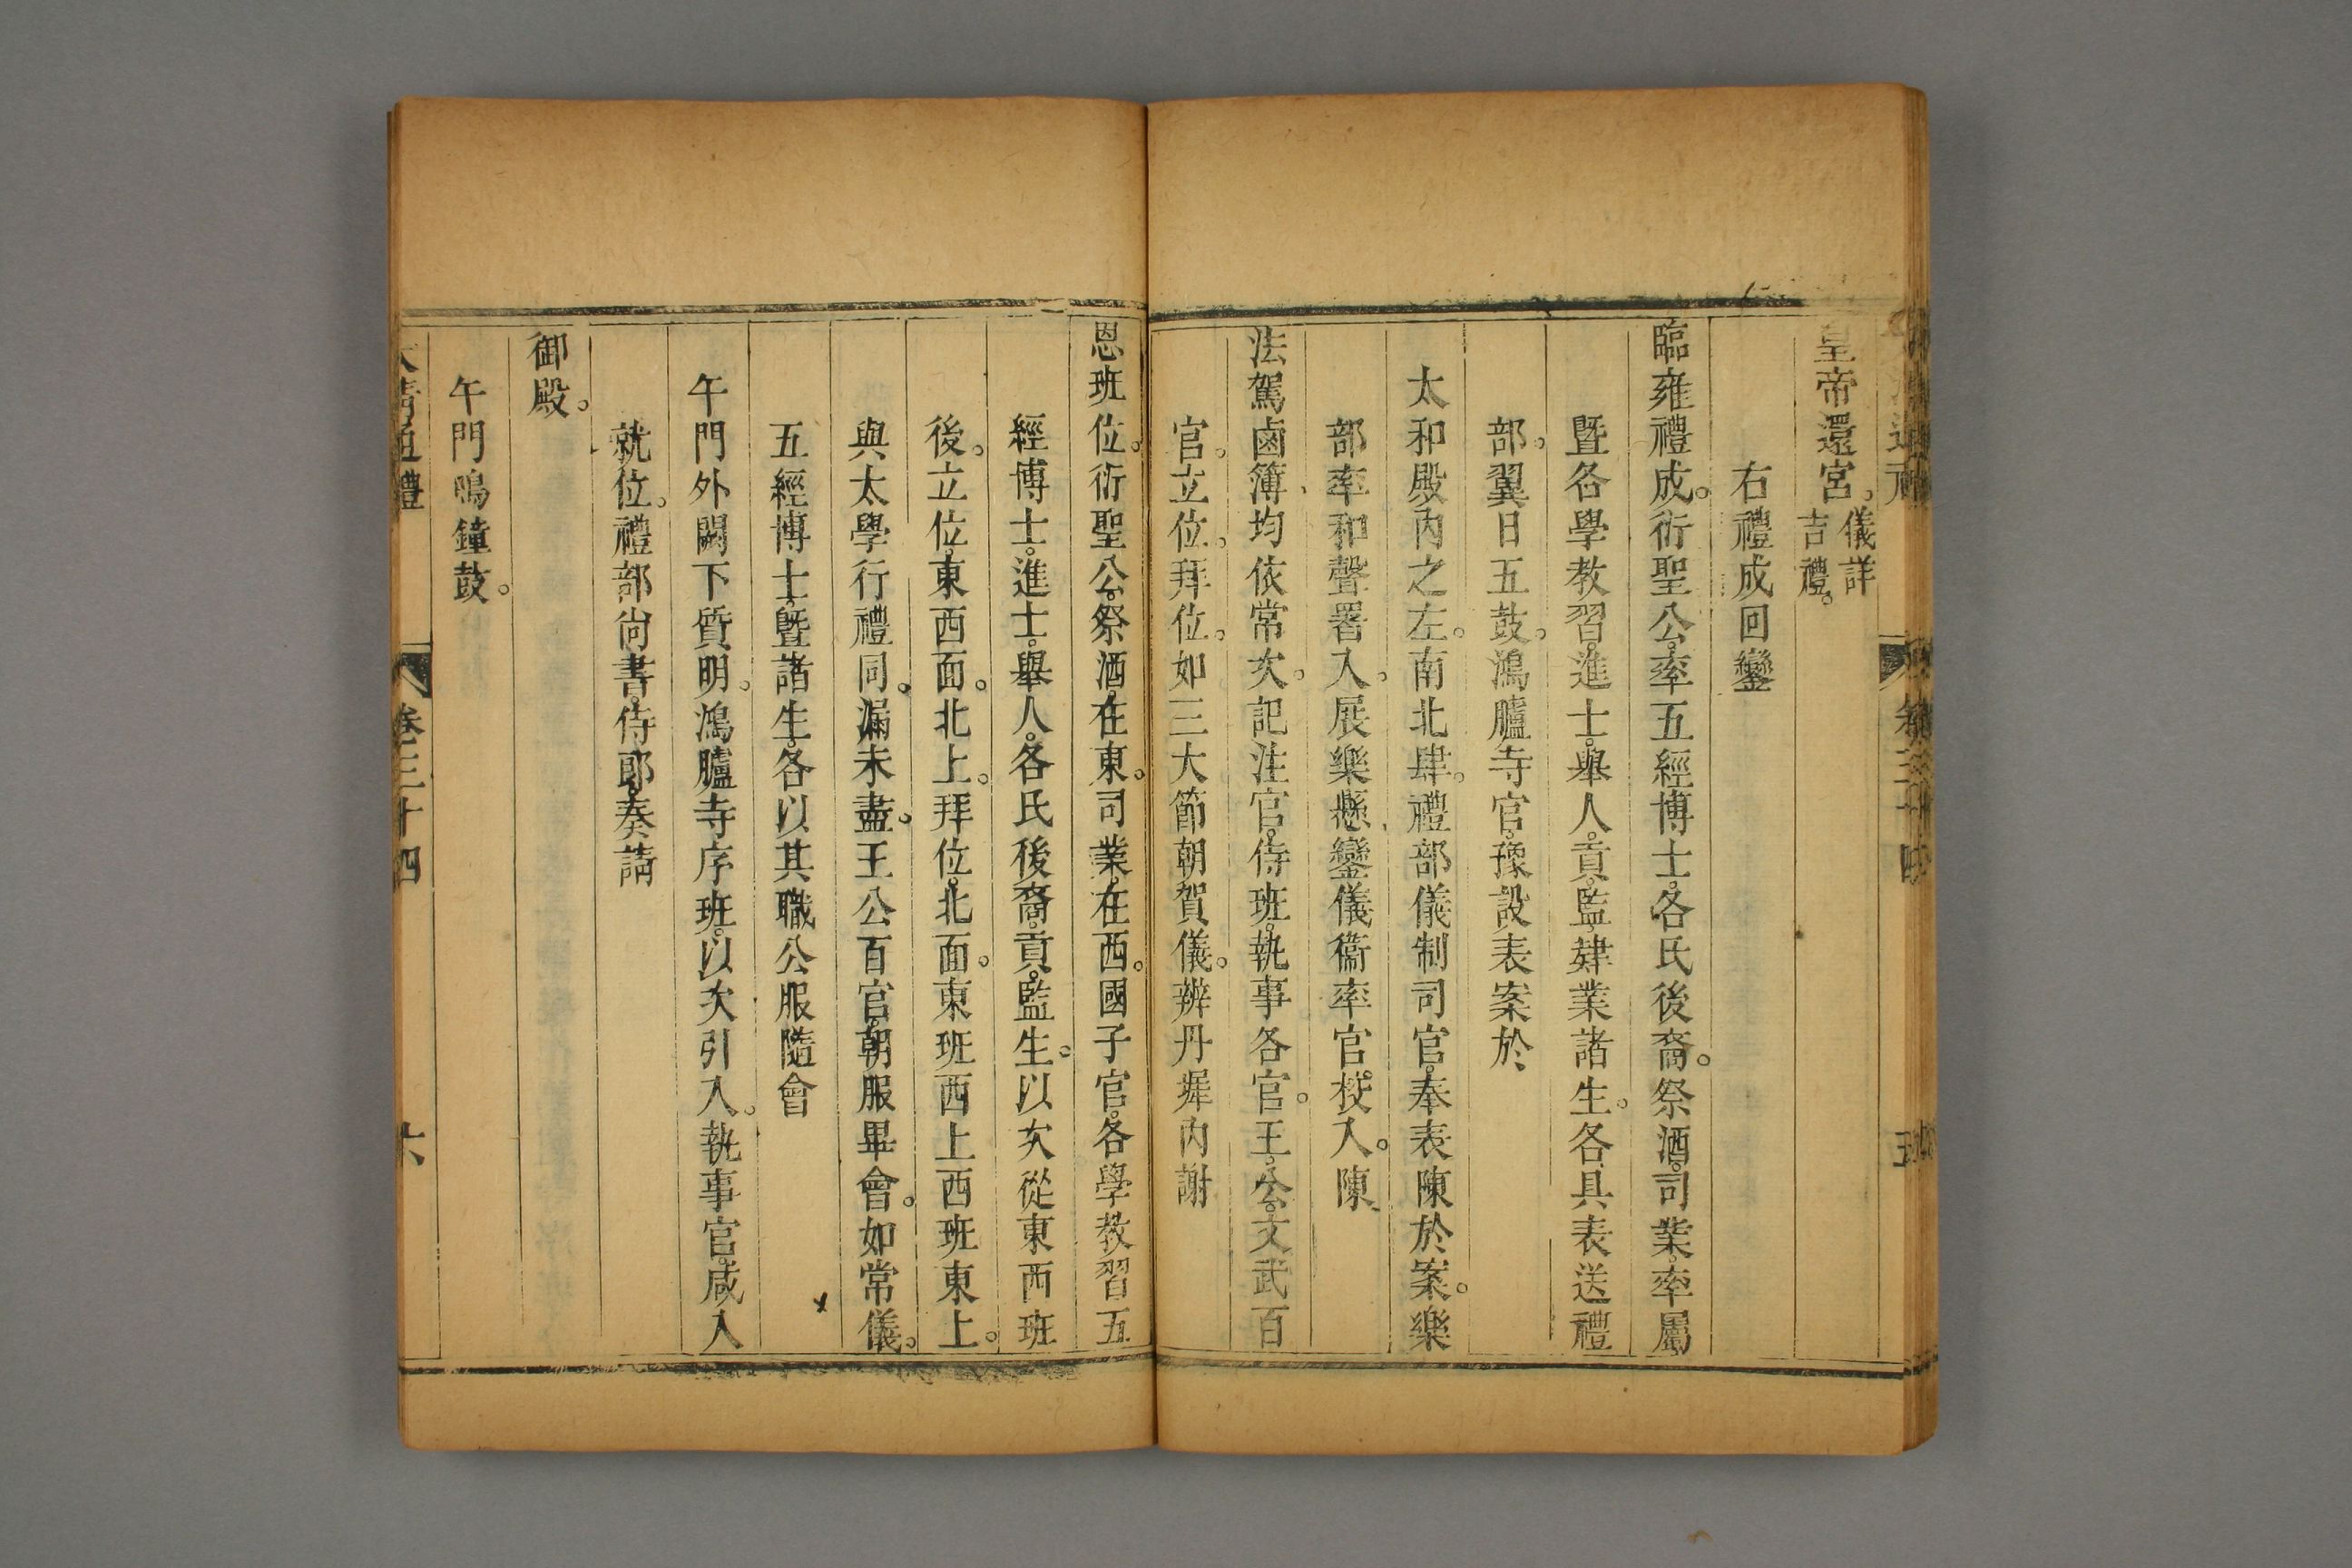 皇帝還宮。儀詳
吉禮。
右禮成回鑾
臨雍禮成。衍聖公。率五經博士。各氏後裔。祭酒。司業。率屬
暨各學教習。進士。舉人。貢。監。肄業諸生。各具表送禮
部。翼日五鼓。鴻臚寺官。豫設表案於
太和殿內之左。南北肆。禮部儀制司官。奉表陳於案。樂
部率和聲署入。展樂懸。鑾儀衞率官校入。陳
法駕鹵簿。均依常次。記注官。侍班。執事各官。王。公。文武百
官。立位。拜位。如三大節朝賀儀。辨丹墀內謝
恩班位。衍聖公。祭酒。在東。司業。在西。國子官。各學教習。五
經博士。進士。舉人。各氏後裔。貢。監生。以次從東西班
後。立位。東西面。北上。拜位。北面。東班西上西班東上。
與太學行禮同。漏未盡。王公百官。朝服畢會。如常儀。
五經博士。暨諸生。各以其職公服隨會
午門外闕下質明。鴻臚寺序班。以次引入。執事官。咸入
就位。禮部尚書。侍郎。奏請
御殿。
午門鳴鐘鼓。
大清通禮 卷三十四 六